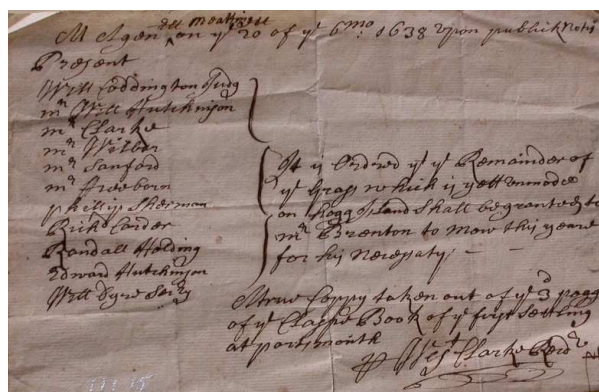 At A Gen^ll Meetting on y^e 20 of y^e 6^mo: 1638 upon publick Notis
Present
Will Coddington Judg
m^r Will Hutchinson
m^r Clarke
m^r Wilbor
m^r Sanford
m^r Freeborn
phillip Sherman
Rich^d Carder
Randall Holding
Edward Hutchinson
Will Dyre Secr^y
It is Ordered y^t y^e Remainder of
y^e Grass which is yett unmode
on Hogg Island Shall be granted to
m^r Brenton to Mow this yeare
for his Necesaty
A true Coppy taken out of y^e 3^d page
of y^e Book of y^e first Settling
at portsmouth
West Clarke Record^r